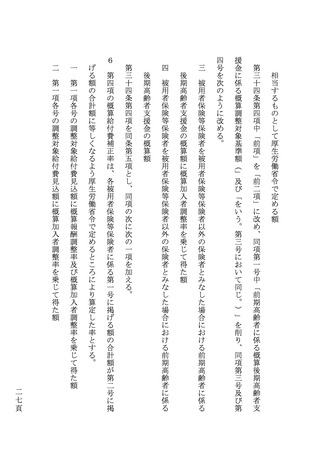 相当するものとして厚生労働省令で定める額
第三十四条第四項中「前項」を「前二項」に改め、同項第一号中「前期高齢者に係る概算後期高齢者支
援金に係る概算調整対象基準額（」及び「をいう。第三号において同じ。）」を削り、同項第三号及び第
四号を次のように改める。
三　被用者保険等保険者を被用者保険等保険者以外の保険者とみなした場合における前期高齢者に係る
後期高齢者支援金の概算額に概算加入者調整率を乗じて得た額
四　被用者保険等保険者を被用者保険等保険者以外の保険者とみなした場合における前期高齢者に係る
後期高齢者支援金の概算額
第三十四条第四項を同条第五項とし、同項の次に次の一項を加える。
６　第四項の概算給付費補正率は、各被用者保険等保険者に係る第一号に掲げる額の合計額が第二号に掲
げる額の合計額に等しくなるよう厚生労働省令で定めるところにより算定した率とする。
一　第一項各号の調整対象給付費見込額に概算報酬調整率及び概算加入者調整率を乗じて得た額
二　第一項各号の調整対象給付費見込額に概算加入者調整率を乗じて得た額
二七頁